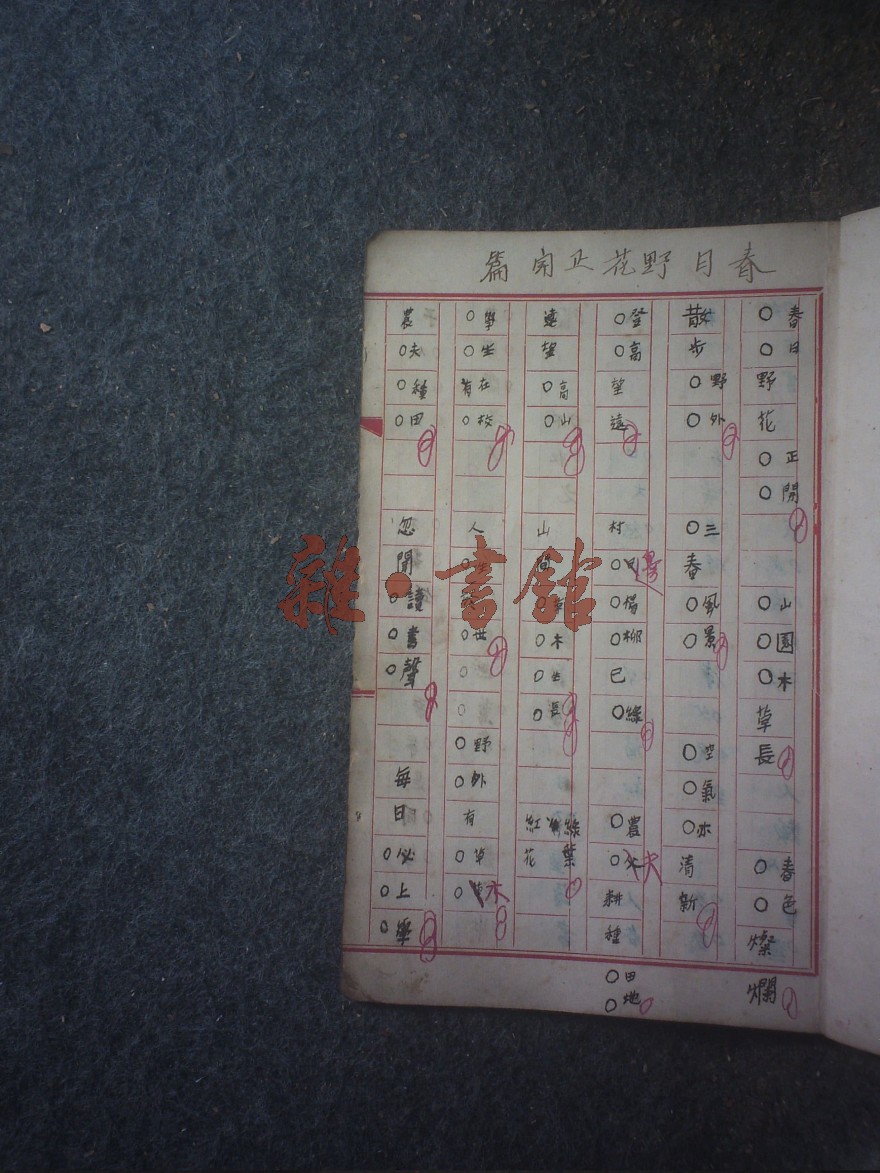 春日野花正開篇
春日野花正開 山園木草長 春色燦爛
散步野外 三春風景 空氣亦清新
登高望遠 村邊楊柳已綠 農夫耕種田地
遠望高山 山間草木生長 紅花綠葉
學生在校 人 世 野外有草木
農夫種田 忽聞讀書聲 每日必上學
雜·書館